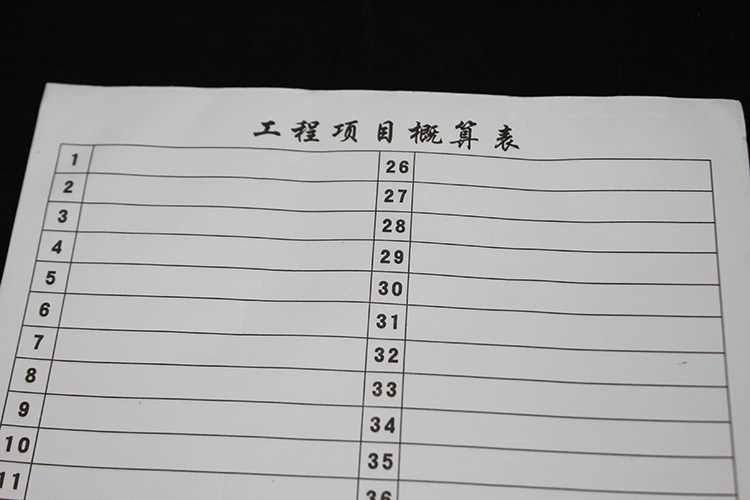 工程项目概算表
1 26
2 27
3 28
4 29
5 30
6 31
7 32
8 33
9 34
10 35
11 36